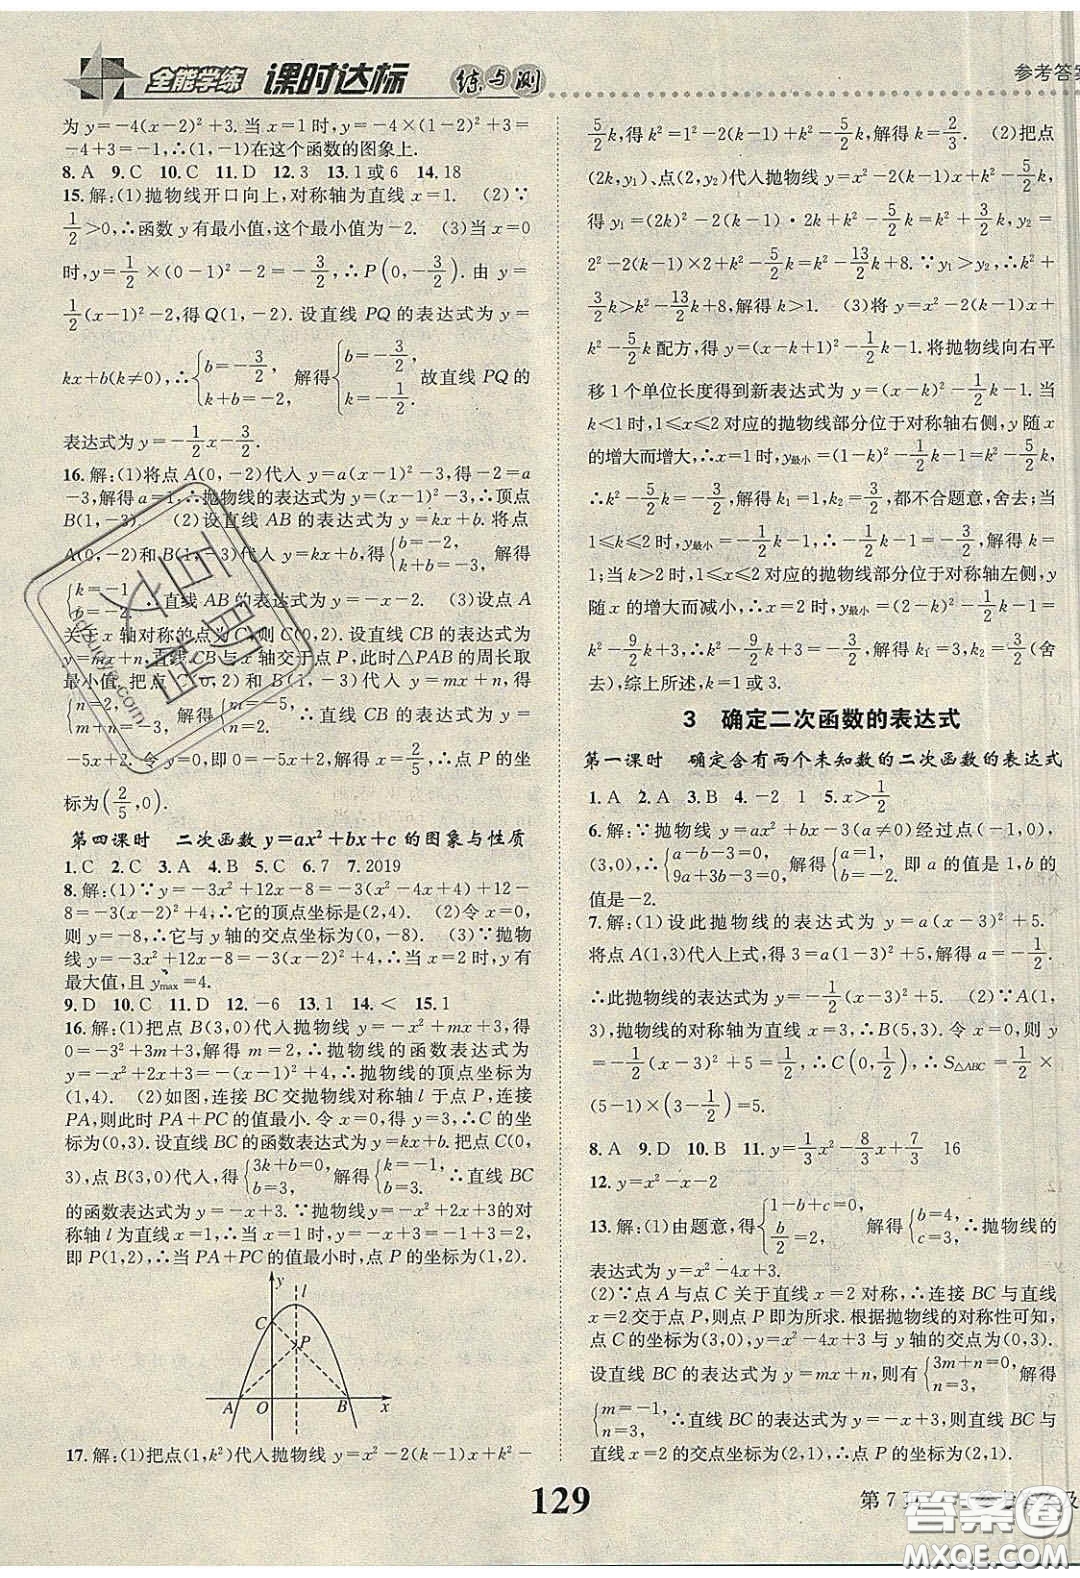 全能学练 课时达标 练与测
参考答案
为 y=-4(x-2)²+3.当 x=1 时,y=-4×(1-2)²+3=
-4+3=-1,∴(1,-1)在这个函数的图象上.
8.A 9.C 10.C 11.D 12.3 13.1或6 14.18
15.解:(1)抛物线开口向上,对称轴为直线 x=1. (2)∵
1/2>0,∴函数 y 有最小值,这个最小值为-2. (3)当 x=0
时,y=1/2×(0-1)²-2=-3/2,∴P(0,-3/2).由 y=
1/2(x-1)²-2,得Q(1,-2).设直线 PQ 的表达式为 y=
kx+b(k≠0),∴{b=-3/2, k+b=-2, 解得{b=-3/2, k=-1/2. 故直线 PQ 的
表达式为 y=-1/2x-3/2.
16.解:(1)将点 A(0,-2)代入 y=a(x-1)²-3,得-2=a
-3,解得 a=1,∴抛物线的表达式为 y=(x-1)²-3,∴顶点
B(1,-3). (2)设直线 AB 的表达式为 y=kx+b.将点
A(0,-2)和 B(1,-3)代入 y=kx+b,得{b=-2, k+b=-3, 解得
{k=-1, b=-2. ∴直线 AB 的表达式为 y=-x-2. (3)设点 A
关于 x 轴对称的点为 C,则 C(0,2).设直线 CB 的表达式为
y=mx+n,直线 CB 与 x 轴交于点 P,此时△PAB 的周长取
最小值.把点 C(0,2)和 B(1,-3)代入 y=mx+n,得
{n=2, m+n=-3, 解得{m=-5, n=2, ∴直线 CB 的表达式为 y=
-5x+2.令 y=0,得-5x+2=0,解得 x=2/5,∴点 P 的坐
标为(2/5,0).
第四课时 二次函数 y=ax²+bx+c 的图象与性质
1.C 2.C 3.A 4.B 5.C 6.7 7.2019
8.解:(1)∵y=-3x²+12x-8=-3(x²-4x+4)+12-
8=-3(x-2)²+4,∴它的顶点坐标是(2,4). (2)令 x=0,
则 y=-8,∴它与 y 轴的交点坐标为(0,-8). (3)∵抛物
线 y=-3x²+12x-8=-3(x-2)²+4,∴当 x=2 时,y 有
最大值,且 ymax=4.
9.D 10.C 11.D 12.-6 13.1 14.< 15.1
16.解:(1)把点 B(3,0)代入抛物线 y=-x²+mx+3,得
0=-3²+3m+3,解得 m=2,∴抛物线的函数表达式为
y=-x²+2x+3=-(x-1)²+4,∴抛物线的顶点坐标为
(1,4). (2)如图,连接 BC 交抛物线对称轴 l 于点 P,连接
PA,则此时 PA+PC 的值最小.令 x=0,得 y=3,∴C 的坐
标为(0,3).设直线 BC 的函数表达式为 y=kx+b.把点 C(0,
3),点 B(3,0)代入,得{3k+b=0, b=3, 解得{k=-1, b=3, ∴直线 BC
的函数表达式为 y=-x+3.∵抛物线 y=-x²+2x+3的对
称轴 l 为直线 x=1,∴当 x=1 时,y=-x+3=-1+3=2,
即 P(1,2),∴当 PA+PC 的值最小时,点 P 的坐标为(1,2).
y
l
C
P
A
O
B
x
17.解:(1)把点(1,k²)代入抛物线 y=x²-2(k-1)x+k²-
5/2k,得 k²=1²-2(k-1)+k²-5/2k,解得 k=2/3. (2)把点
(2k,y₁)、点(2,y₂)代入抛物线 y=x²-2(k-1)x+k²-5/2k,
得 y₁=(2k)²-2(k-1)·2k+k²-5/2k=k²+3/2k,y₂=
2²-2(k-1)×2+k²-5/2k=k²-13/2k+8.∵y₁>y₂,∴k²+
3/2k>k²-13/2k+8,解得 k>1. (3)将 y=x²-2(k-1)x+
k²-5/2k 配方,得 y=(x-k+1)²-1/2k-1.将抛物线向右平
移 1 个单位长度得到新表达式为 y=(x-k)²-1/2k-1.当
k<1 时,1≤x≤2 对应的抛物线部分位于对称轴右侧,y 随 x
的增大而增大,∴x=1 时,y最小=(1-k)²-1/2k-1=k²-5/2k,
∴k²-5/2k=-3/2,解得 k₁=1,k₂=3/2,都不合题意,舍去;当
1≤k≤2 时,y最小=-1/2k-1,∴-1/2k-1=-3/2,解得 k=
1;当 k>2 时,1≤x≤2 对应的抛物线部分位于对称轴左侧,y
随 x 的增大而减小,∴x=2 时,y最小=(2-k)²-1/2k-1=
k²-9/2k+3,∴k²-9/2k+3=-3/2,解得 k₁=3,k₂=3/2(舍
去),综上所述,k=1 或 3.
3 确定二次函数的表达式
第一课时 确定含有两个未知数的二次函数的表达式
1.A 2.A 3.B 4.-2 1 5.x>1/2
6.解:∵抛物线 y=ax²+bx-3(a≠0)经过点(-1,0),
(3,0),∴{a-b-3=0, 9a+3b-3=0, 解得{a=1, b=-2. 即 a 的值是 1,b 的
值是-2.
7.解:(1)设此抛物线的表达式为 y=a(x-3)²+5.
将点 A(1,3)代入上式,得 3=a(1-3)²+5,解得 a=-1/2.
∴此抛物线的表达式为 y=-1/2(x-3)²+5. (2)∵A(1,
3),抛物线的对称轴为直线 x=3,∴B(5,3).令 x=0,则 y
=-1/2(x-3)²+5=1/2,∴C(0,1/2),∴S△ABC=1/2×
(5-1)×(3-1/2)=5.
8.A 9.D 10.B 11.y=1/3x²-8/3x+7/3 16
12.y=x²-x-2
13.解:(1)由题意,得{1-b+c=0, b/2=2, 解得{b=4, c=3, ∴抛物线的
表达式为 y=x²-4x+3.
(2)∵点 A 与点 C 关于直线 x=2 对称,∴连接 BC 与直线
x=2 交于点 P,则点 P 即为所求.根据抛物线的对称性可知,
点 C 的坐标为(3,0),y=x²-4x+3 与 y 轴的交点为(0,3).
设直线 BC 的表达式为 y=mx+n,则有{3m+n=0, n=3, 解得
{m=-1, n=3, ∴直线 BC 的表达式为 y=-x+3,则直线 BC 与
直线 x=2 的交点坐标为(2,1),∴点 P 的坐标为(2,1).
129
第 7 页
答案圈
MXQE.COM